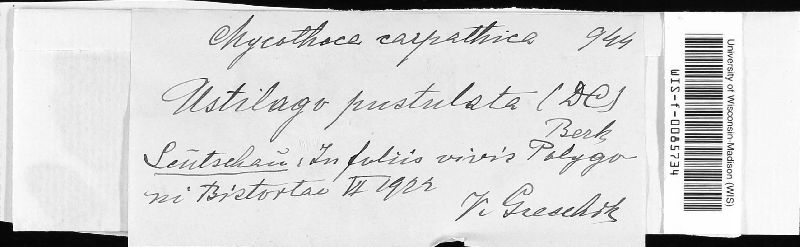 Mycothoca carpathica 944
Ustilago pustulata (DC)
Berk
Leutschau: In foliis vivis Polygo
ni Bistortae VI 1922
V. Greschik
University of Wisconsin-Madison (WIS)
WIS-f-0085734